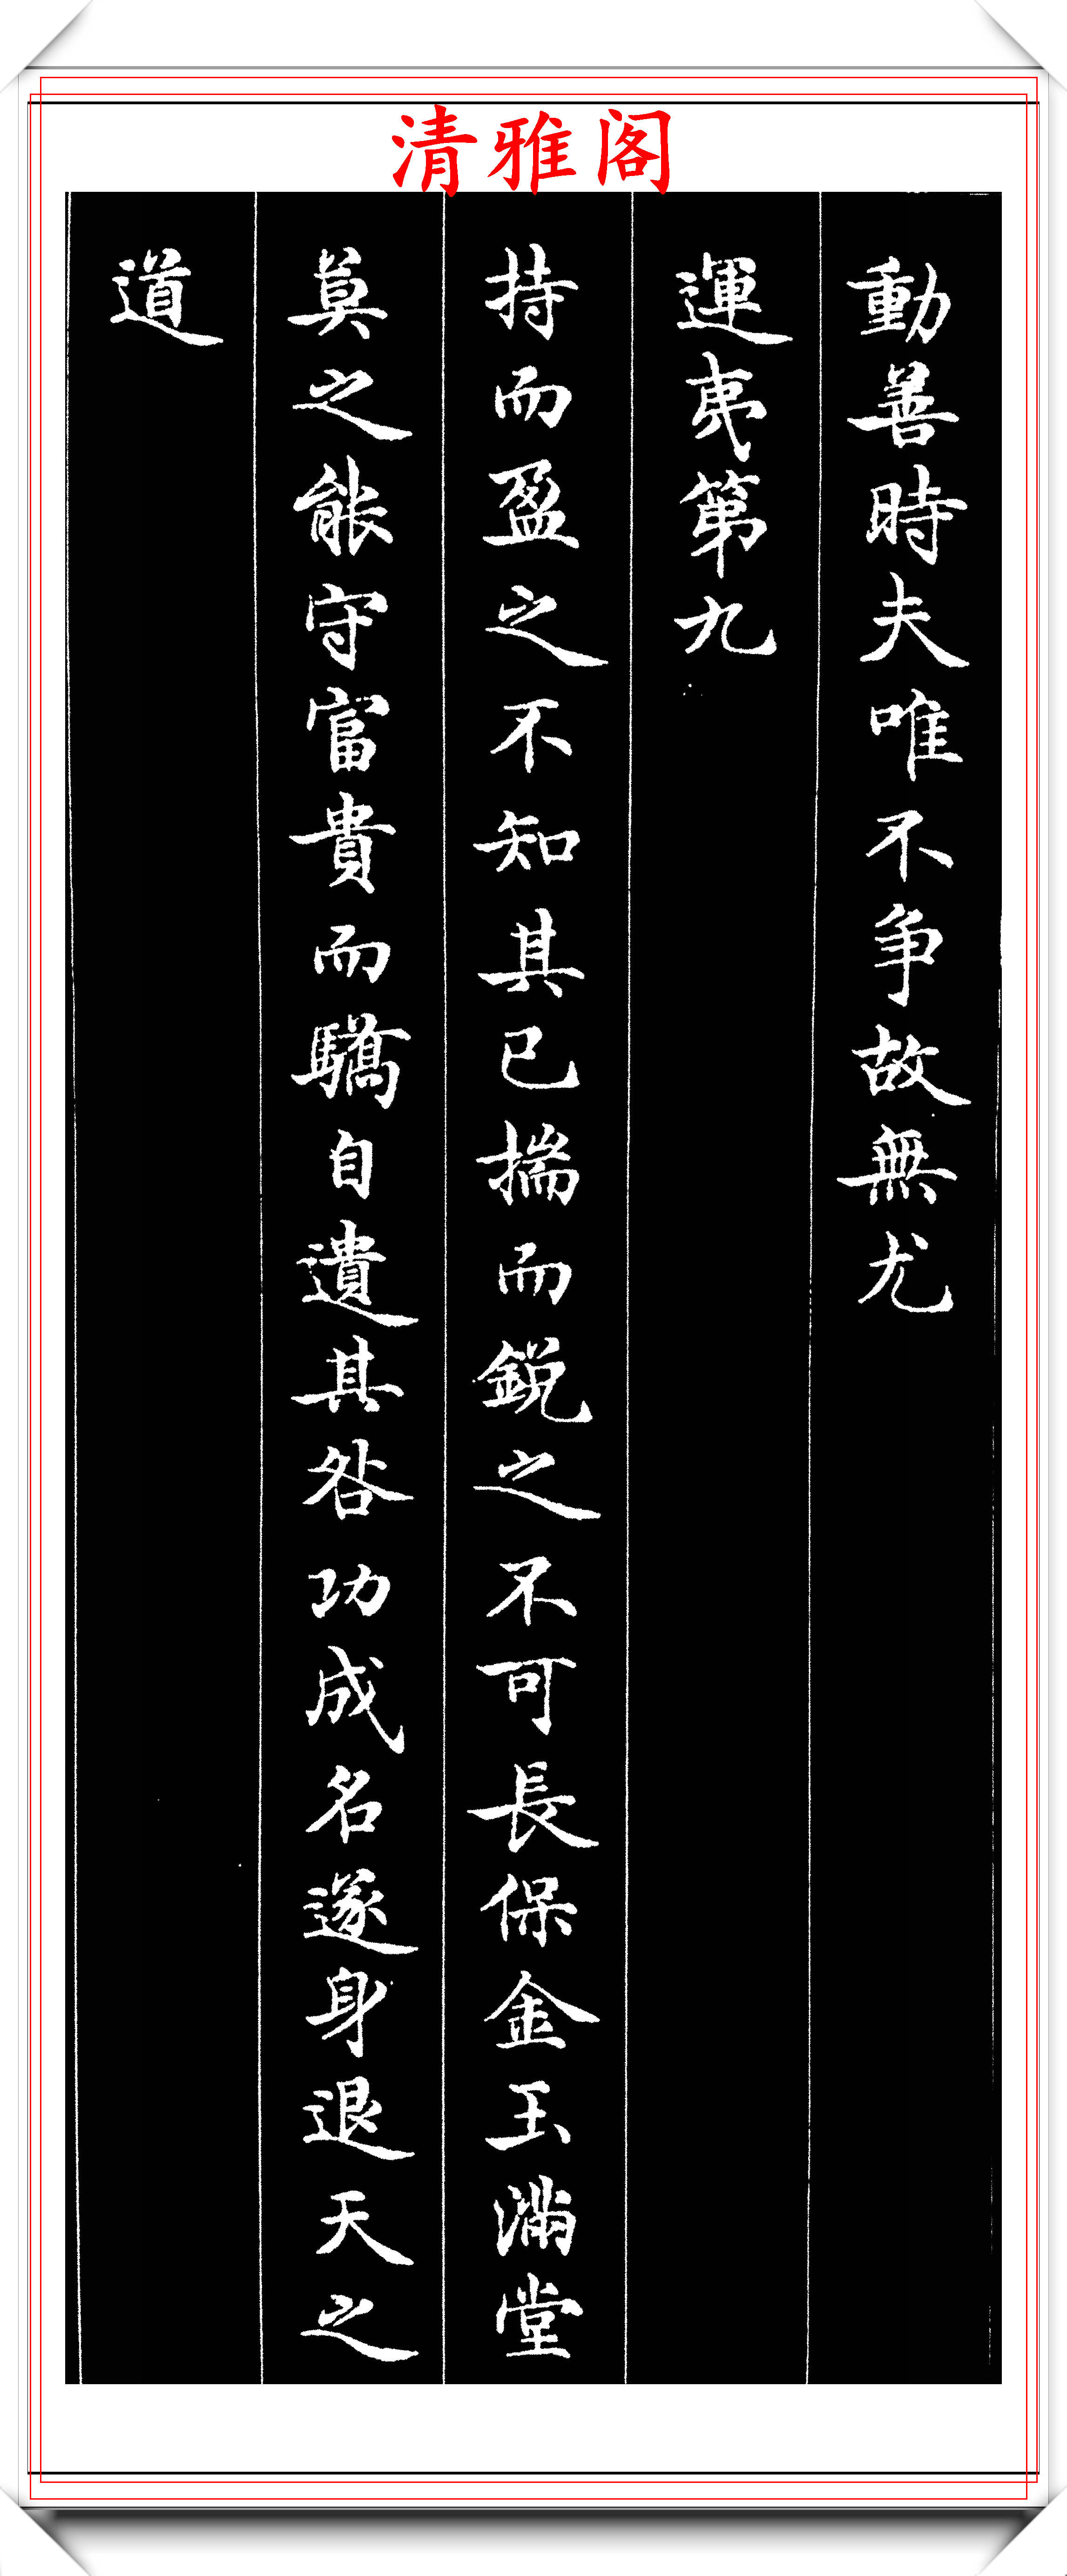 清雅阁
動善時夫唯不争故無尤
運夷第九
持而盈之不知其已揣而銳之不可長保金玉滿堂
莫之能守富貴而驕自遺其咎功成名遂身退天之
道